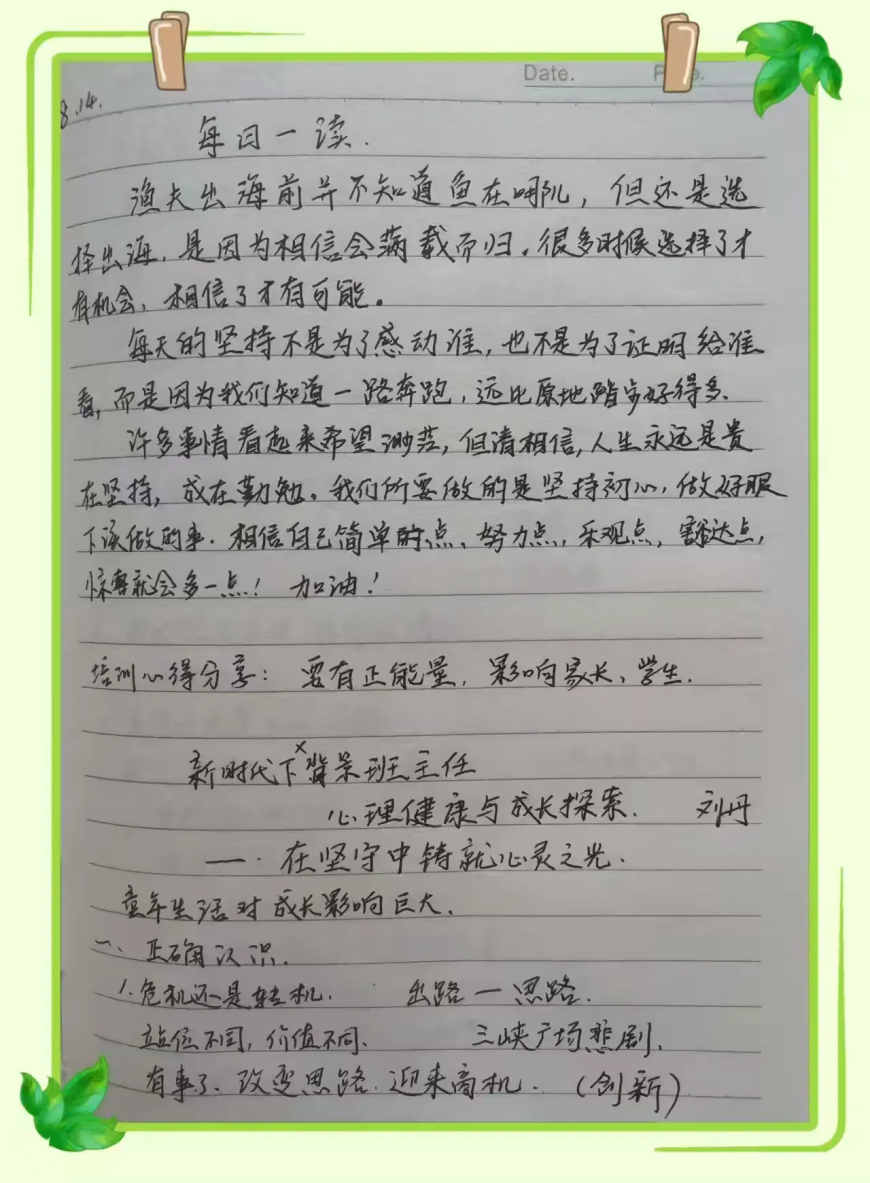 Date.
8.14.
每日一读.
渔夫出海前并不知道鱼在哪儿，但还是选
择出海，是因为相信会满载而归。很多时候选择了才
有机会，相信了才有可能。
每天的坚持不是为了感动谁，也不是为了证明给谁
看，而是因为我们知道一路奔跑，远比原地踏步好得多.
许多事情看起来希望渺茫，但请相信，人生永远是贵
在坚持，成在勤勉。我们所要做的是坚持初心，做好眼
下该做的事. 相信自己简单的点、努力点，乐观点，豁达点，
惊喜就会多一点！ 加油！
培训心得分享：要有正能量，影响家长、学生.
新时代下背景班主任
心理健康与成长探索. 刘丹
一. 在坚守中铸就心灵之光.
童年生活对成长影响巨大.
一、正确认识.
1. 危机还是转机. 出路一思路.
站位不同，价值不同、 三峡广场悲剧.
有事了、改变思路. 迎来商机. （创新）